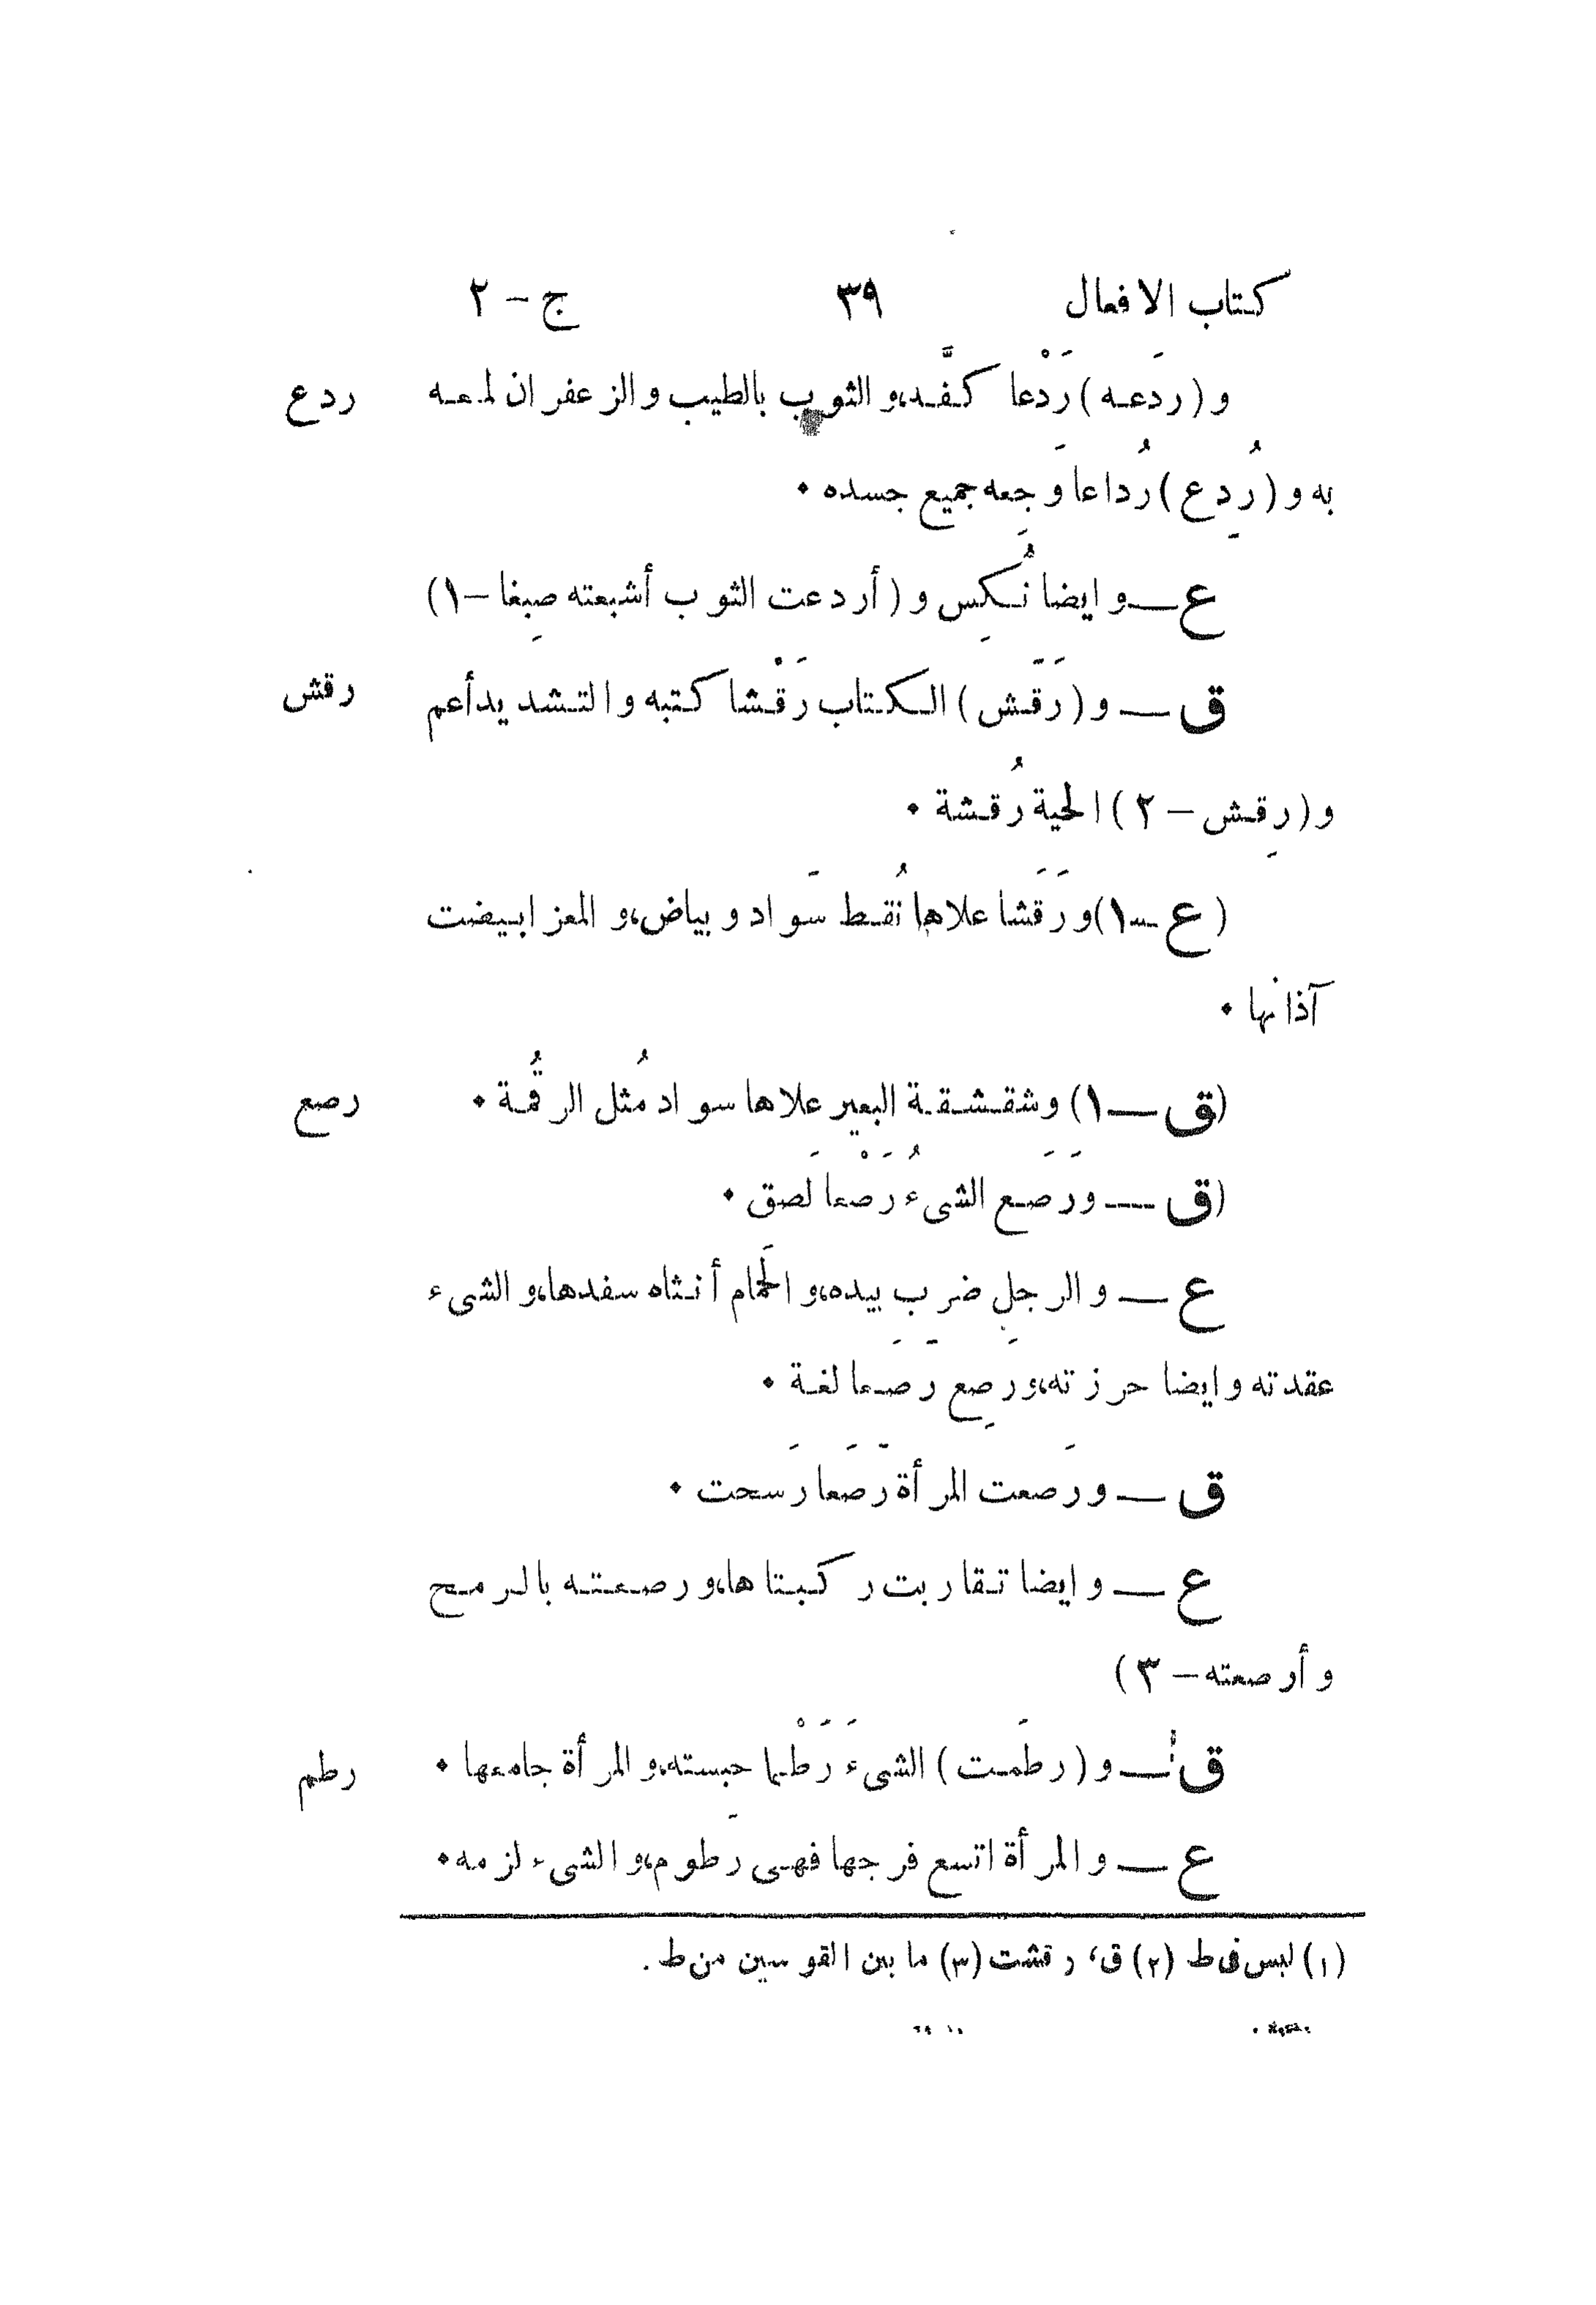 كتاب الافعال ٣٩ ج - ٢
و (ردَعه) رَدْعا كفَّه، والثوب بالطيب والزعفران لمعه ردع
به و (رُدِع) رُداعا وَجِعه جميع جسده •
ع — وايضا نُكِس و (أردعت الثوب أشبعته صِبغا - ١)
ق — و (رَقَش) الكتاب رَقْشا كتبه والتشديد أعم رقش
و (رقِش - ٢) الحية رُقشة •
(ع - ١) ورَقَشا علاها نُقط سَواد وبياض، والمعز ابيضت
آذانها •
(ق — ١) وشقشقة البعير علاها سواد مُثل الرقُمة • رصع
(ق — ورَصَع الشىء رَصْعا لَصق •
ع — والرجل ضرب بيده، والحَمام أنثاه سفدها، والشىء
عقدته وايضا حرزته، ورصِع رَصَعا لغة •
ق — ورَصعت المرأة رَصَعا رَسحت •
ع — وايضا تقاربت ركبتاها، ورصعته بالرمح
وأرصعته - ٣)
ق — و (رطَمت) الشىء رَطْما حبسته، والمرأة جامعها • رطم
ع — والمرأة اتسع فرجها فهى رَطوم، والشىء لزمه •
(١) ليس فى ط (٢) ق، رقشت (٣) ما بين القوسين من ط .